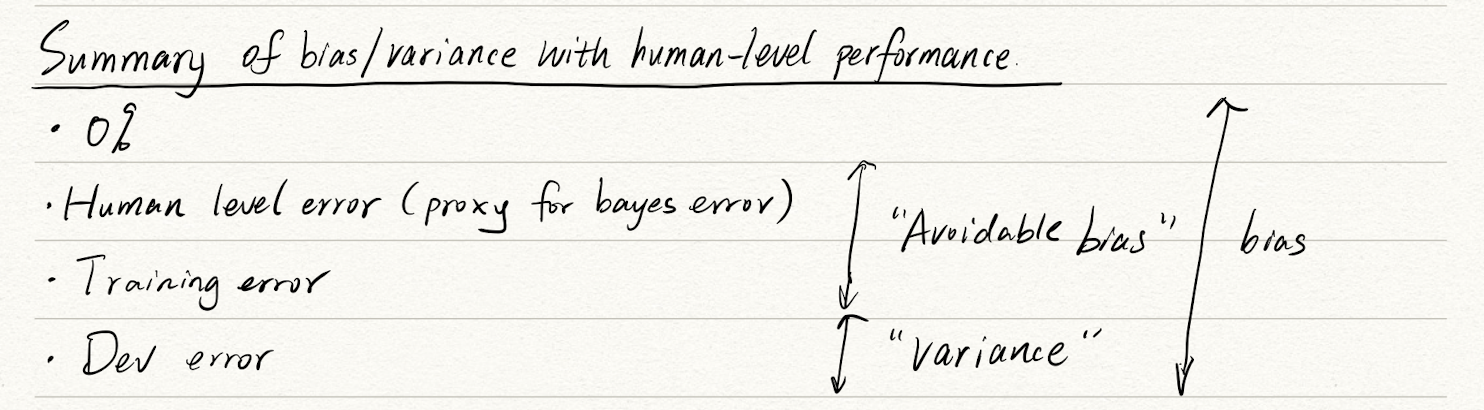 Summary of bias/variance with human-level performance.
• 0%
• Human level error (proxy for bayes error)
"Avoidable bias"
bias
• Training error
• Dev error
"variance"